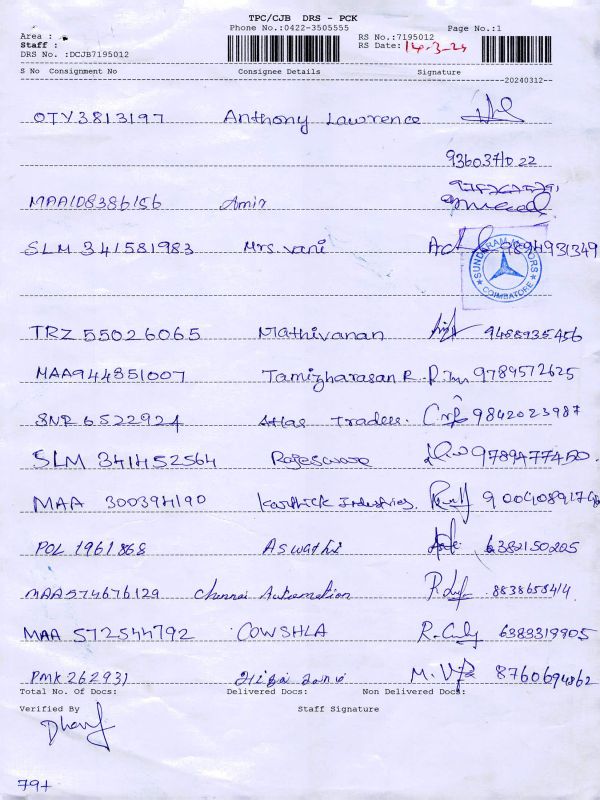 TPC/CJB DRS - PCK
Phone No.:0422-3505555 Page No.:1
Area : RS No.:7195012
Staff : RS Date: 14-3-24
DRS No. :DCJB7195012
S No Consignment No Consignee Details Signature
20240312
OTY3813197 Anthony Lawrence
9360371022
MAA108386156 Amir
SLM 341581983 Mrs. Vani 9894931349
SUNDARAM MOTORS
COIMBATORE
TRZ 55026065 Mathivanan 9488935456
MAA944851007 Tamizharasan R 9789572625
SNR 6522924 Atlas Traders 9842023987
SLM 341452564 Rajeswari
MAA 300394190 Karthick Industries.
POL 1961868 Aswathi 6382150205
MAA574676129 Chennai Automation 8838655414
MAA 572544792 COWSHLA 6383319905
PMK 262931 8760694862
Total No. Of Docs: Delivered Docs: Non Delivered Docs:
Verified By Staff Signature